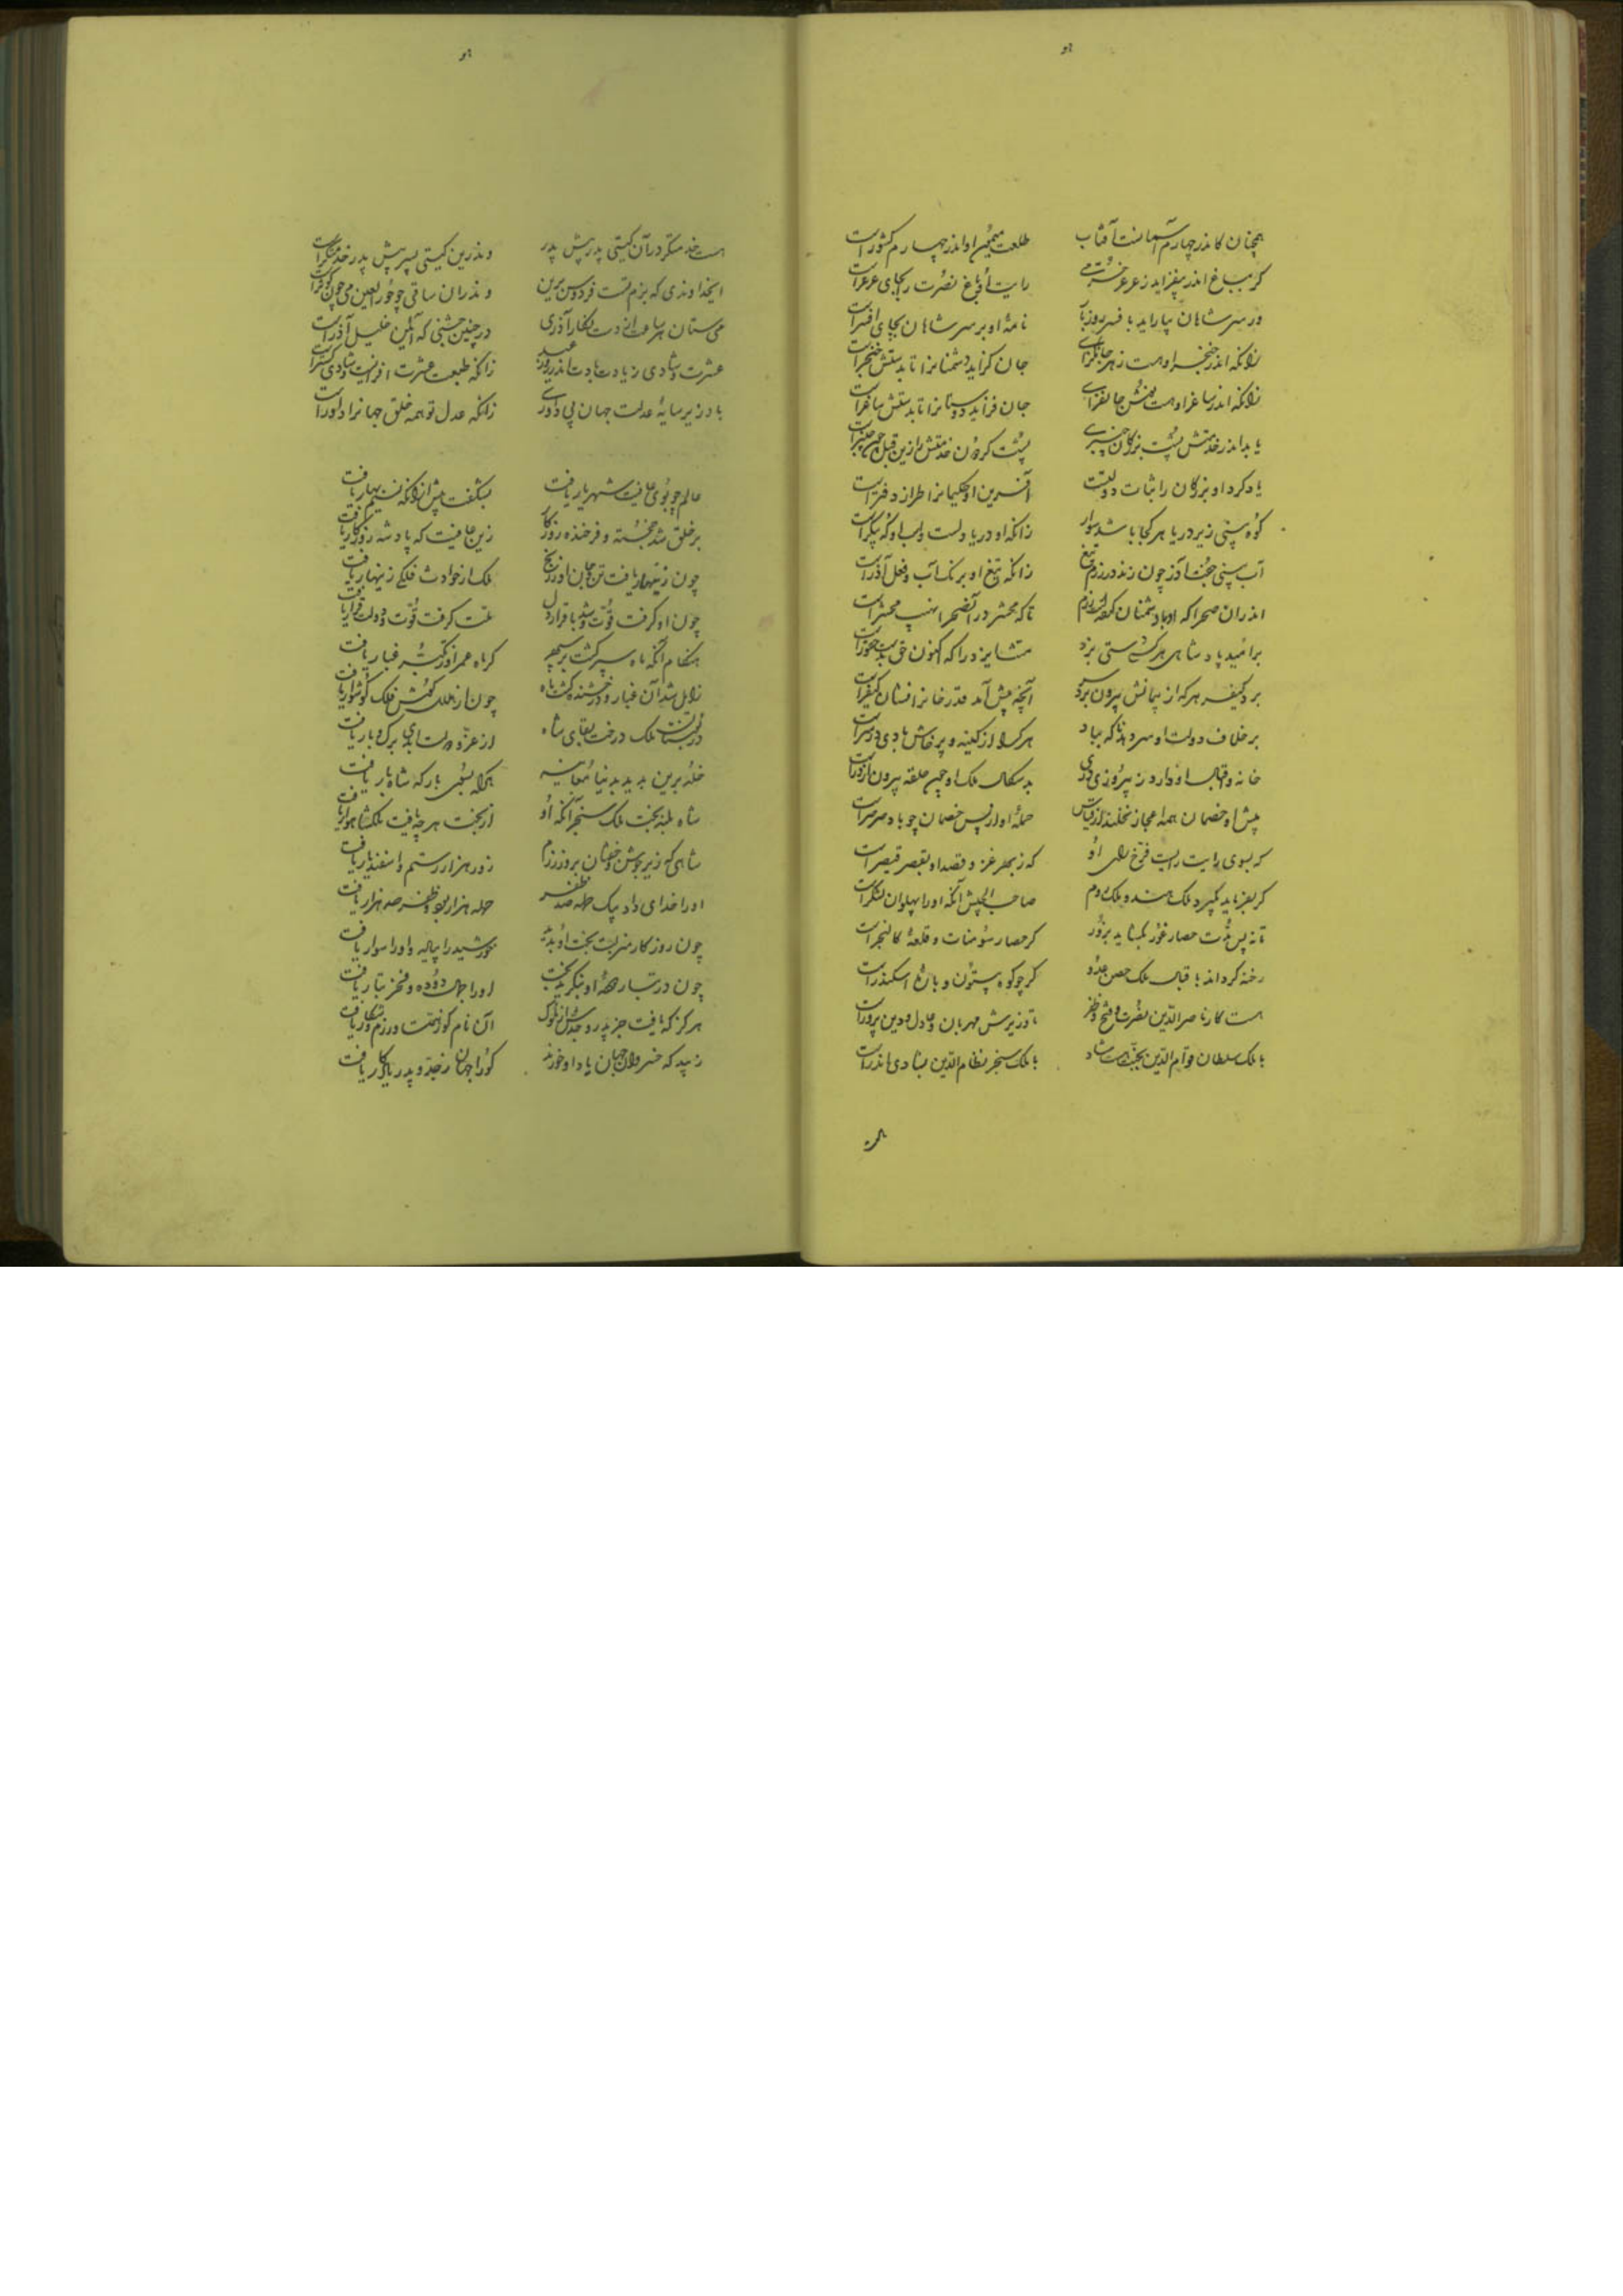 هو
همچنان کاندر چهارم آسمانست آفتاب طلعت میمون او اندر چهارم کشورست
کر بباغ اندر بیفزاید ز عرعر خرمی رایت او باغ نصرت را بجای عرعرست
ور سر شاهان بیاراید بافسر روز بار نامهٔ او بر سر شاهان بجای افسرست
زانکه اندر خنجر او هست زهر جانکزای جان کزاید دشمنانرا تا بدستش خنجرست
زانکه اندر ساغر او هست نوش جانفزای جان فزاید دوستانرا تا بدستش ساغرست
یابد اندر خدمتش پشت بزرکان چنبری پشت کردون خدمتش را زین قبل چون چنبرست
یاد کرد او بزرکان را ثبات دولتست آفرین او حکیمانرا طراز دفترست
کوه بینی زیر دریا هر کجا باشد سوار زانکه او دریا دلست و اسب او که پیکرست
آب بینی جفت آذر چون زند در رزم تیغ زانکه تیغ او برنک آب و فعل آذرست
اندران صحرا که او با دشمنان کرد رزم تا که محشر در آن صحرا نهیب محشرست
بر امید پادشاهی هر کسی دستی بزد منت ایزد را که اکنون حق بدست حقورست
برد کیفر هر که از پیمانش بیرون برد سر آنچه پیش آمد قدر خانرا نشان کیفرست
بر خلاف دولت او سر دهد ناکه بباد هر کرا از کینه و پرخاش بادی در سرست
خانه و اقبال او دارد ز پیروزی دری بدسکال ملک او چون حلقه بیرون از درست
پیش او خصمان همه اعجاز نخلند از قیاس حملهٔ او از پس خصمان چو باد صرصرست
که بسوی رایت رایست فرخ رای او که ز بهر غزو قصد او بقصر قیصرست
کر بفرماید بکیرد ملک هند و ملک روم صاحب الجیش آنکه او را پهلوان لشکرست
تا نه بس مدت حصار غور بکشاید بزور کر حصار سومنات و قلعهٔ کالنجرست
رخنه کرداند باقبال ملک حصن عدو کر چو کوه بیستون و باره اسکندرست
هست کار ناصر الدین نصرت و فتح و ظفر تا وزیرش مهربان و عادل و دین پرورست
با ملک سلطان قوام الدین بجنت هست شاد با ملک سنجر نظام الدین بشادی اندرست
هو
هست خدمتکر در آن کیتی پدر پیش پدر وندرین کیتی پسر پیش پدر خدمتکرست
ای خداوندی که بزم تست فردوس برین وندران ساقی چو حور العین می چون کوثرست
می ستان هر ساعت از دست نکار آذری در چنین جشنی که آئین خلیل آذرست
عشرت و شادی زیادت بادت اندر روز عید زانکه طبعت عشرت افزایست و شادی کسترست
باد زیر سایهٔ عدلت جهان بی داوری زانکه عدل تو همه خلق جهانرا داورست
عالم چو بوی عافیت شهریار یافت بشکفت پیش از آنکه نسیم بهار یافت
بر خلق شد خجسته و فرخنده روزکار زین عافیت که پادشه روزکار یافت
چون زینهار یافت تن و جان او ز رنج ملک از حوادث فلکی زینهار یافت
چون او کرفت قوت و شد با قرار دل ملت کرفت قوت و دولت قرار یافت
هنکام آنکه ماه سپر کشت بر سپهر کر ماه عمر او ز کدورت غبار یافت
زایل شد آن غبار و درخشنده کشت ماه چون از هلال کوش فلک کوشوار یافت
در بوستان ملک درخت بقای شاه از عز و دولت ابدی برک و بار یافت
خلد برین بدید بدنیا معاینه آنکو بسوی بارکه شاه بار یافت
شاه بلند بخت ملک سنجر آنکه او از بخت هر چه یافت ملکشاه‌وار یافت
شاهی که زیر جوشن و خفتان بروز رزم زور هزار رستم و اسفندیار یافت
او را خدای داد بیک حمله صد ظفر حمله هزار بود و ظفر صد هزار یافت
چون روزکار منزلت بخت او بدید خورشید را پیاده و او را سوار یافت
چون در تبار و عهد او بنکرید بخت او را جمال دوده و فخر تبار یافت
هرکز که یافت جز پدر و جدش از ملوک آن نام کو ز همت و رزم و شکار یافت
زیبد که خسروان جهان یاد او خورند کو را جهان ز جد و پدر یادکار یافت